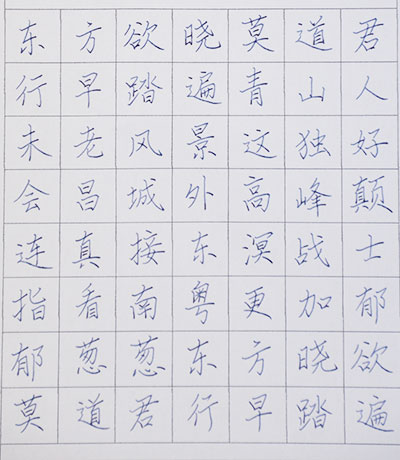 东方欲晓莫道君
行早踏遍青山人
未老风景这独好
会昌城外高峰颠
连真接东溟战士
指看南粤更加郁
郁葱葱东方晓欲
莫道君行早踏遍